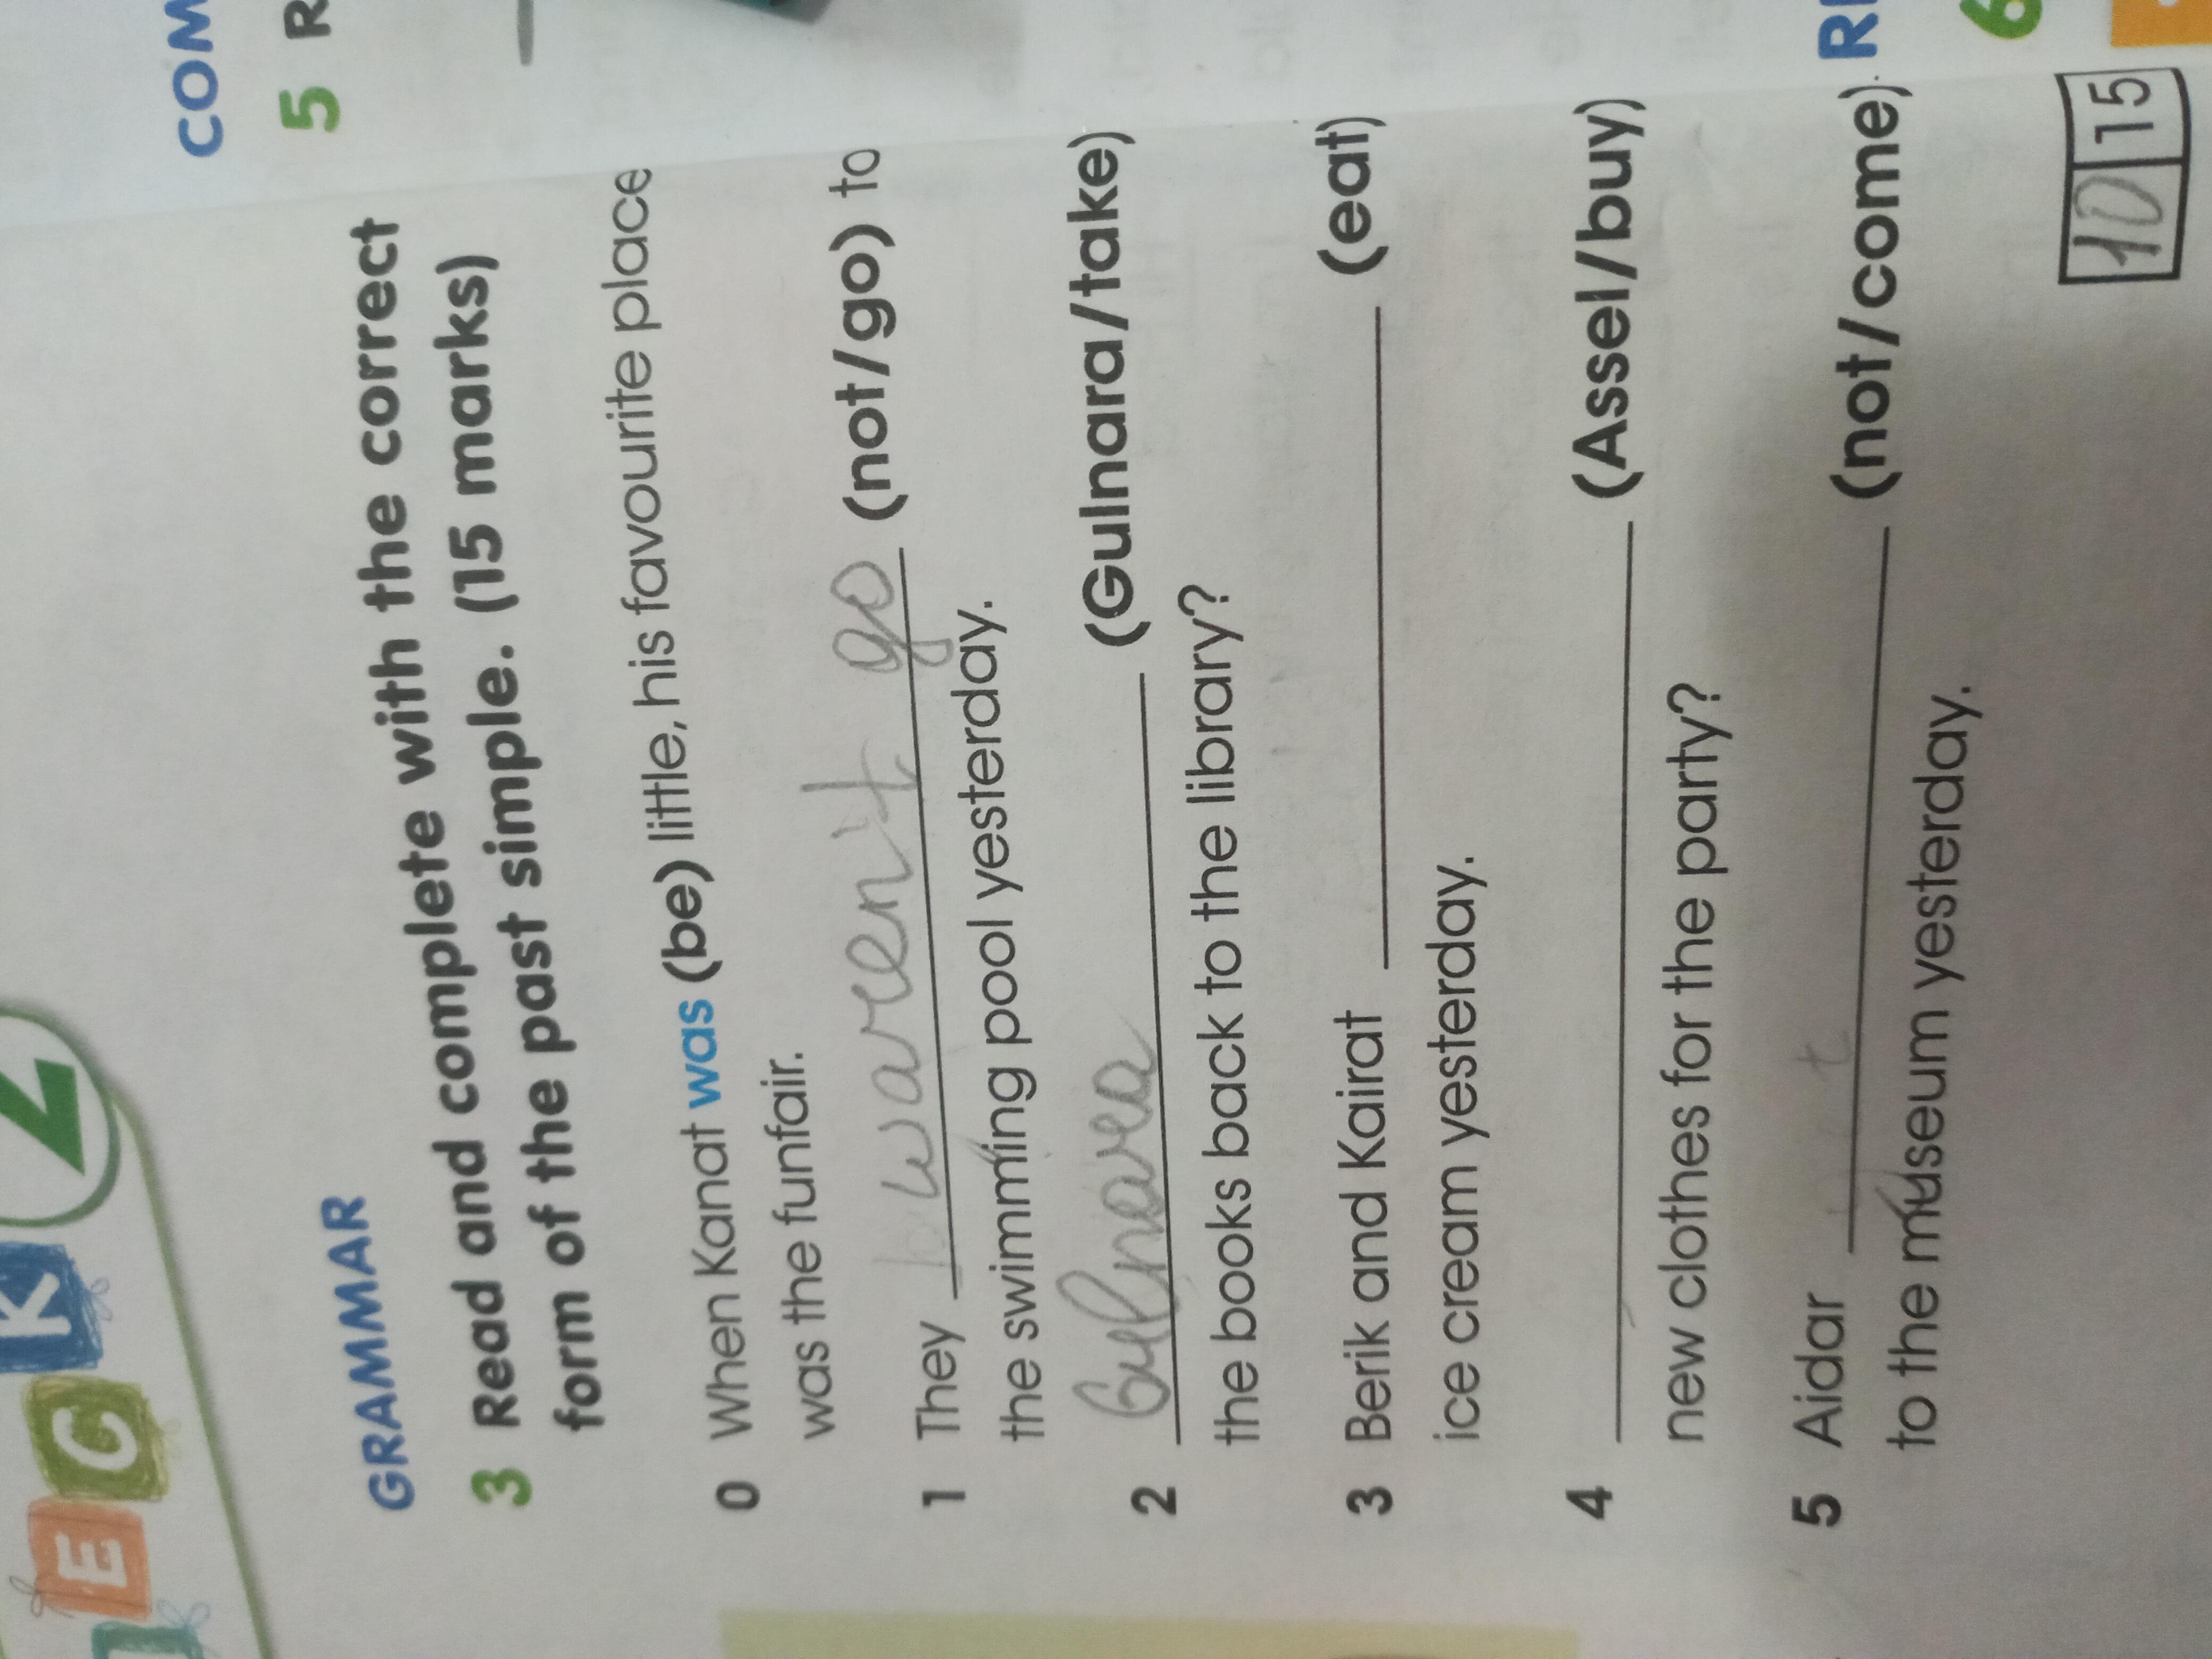 E C K 2
GRAMMAR
3 Read and complete with the correct
form of the past simple. (15 marks)
0 When Kanat was (be) little, his favourite place
was the funfair.
1 They waren't go (not/go) to
the swimming pool yesterday.
2 (Gulnara/take)
the books back to the library?
3 Berik and Kairat (eat)
ice cream yesterday.
4 (Assel/buy)
new clothes for the party?
5 Aidar (not/come)
to the museum yesterday.
10 15
COM
5 R
RE
6